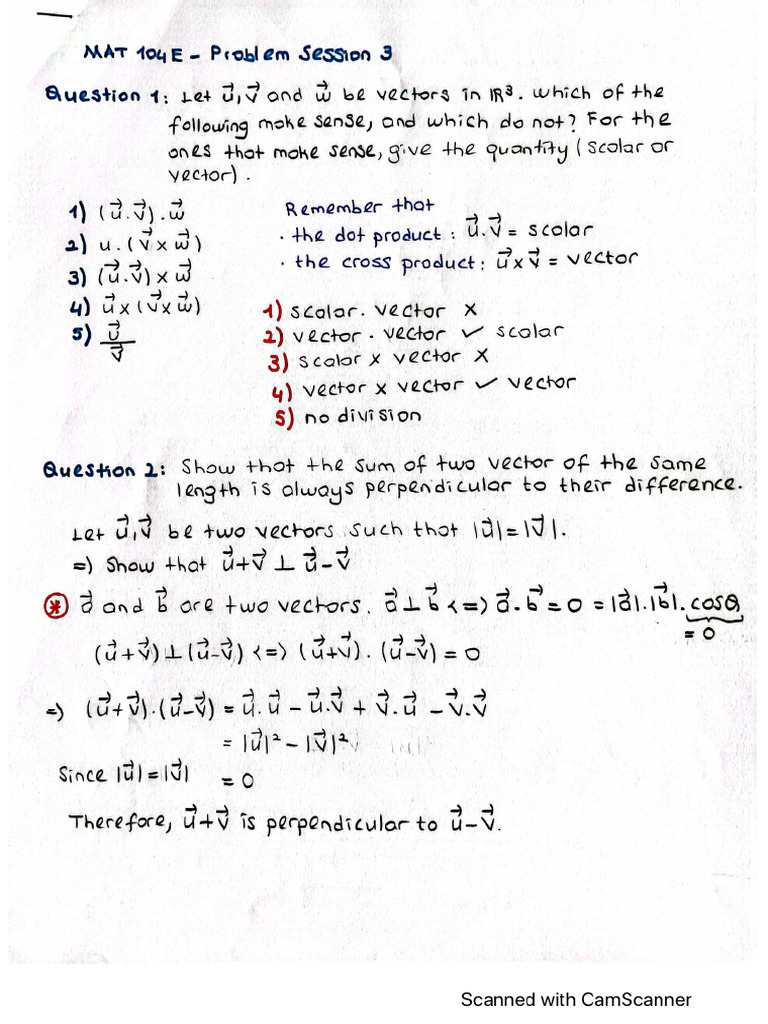 MAT 104E - Problem Session 3
Question 1: Let u⃗, v⃗ and w⃗ be vectors in IR³. Which of the
following make sense, and which do not? For the
ones that make sense, give the quantity (scalar or
vector).
1) (u⃗.v⃗).w⃗
2) u.(v⃗ x w⃗)
3) (u⃗.v⃗) x w⃗
4) u⃗ x (v⃗ x w⃗)
5) u⃗/v⃗
Remember that
· the dot product: u⃗.v⃗ = scalar
· the cross product: u⃗ x v⃗ = vector
1) scalar. vector x
2) vector . vector ✓ scalar
3) scalar x vector x
4) vector x vector ✓ vector
5) no division
Question 2: Show that the sum of two vector of the same
length is always perpendicular to their difference.
Let u⃗, v⃗ be two vectors such that |u⃗| = |v⃗|.
=) Show that u⃗+v⃗ ⊥ u⃗-v⃗
* a⃗ and b⃗ are two vectors. a⃗ ⊥ b⃗ <=> a⃗.b⃗ = 0 = |a⃗|.|b⃗|.cosθ
= 0
(u⃗+v⃗) ⊥ (u⃗-v⃗) <=> (u⃗+v⃗).(u⃗-v⃗) = 0
=) (u⃗+v⃗).(u⃗-v⃗) = u⃗.u⃗ - u⃗.v⃗ + v⃗.u⃗ - v⃗.v⃗
= |u⃗|² - |v⃗|²
Since |u⃗| = |v⃗| = 0
Therefore, u⃗+v⃗ is perpendicular to u⃗-v⃗.
Scanned with CamScanner